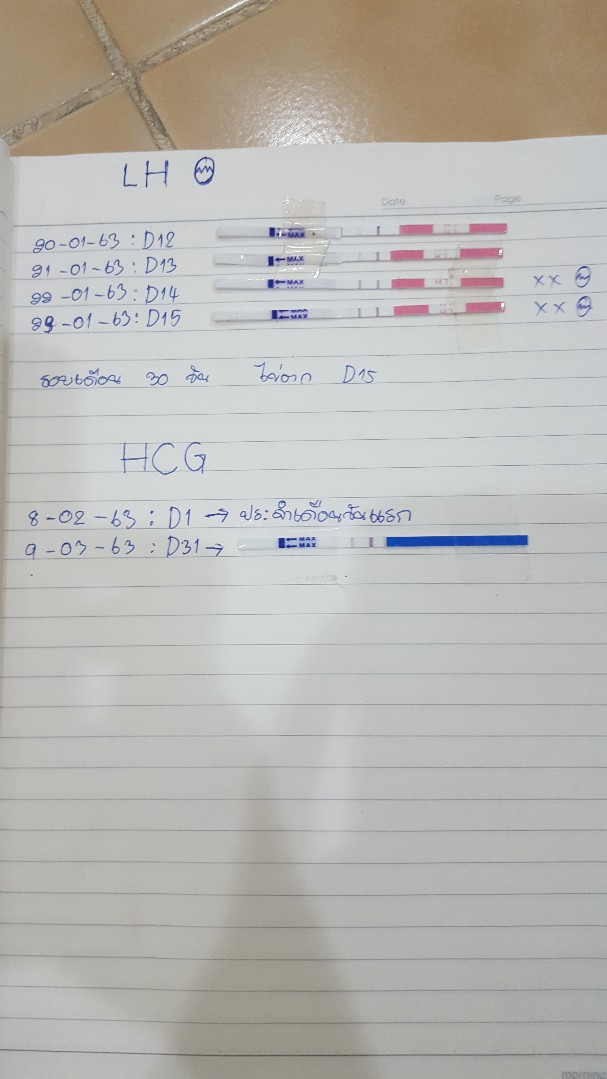 LH
Date Page
20-01-63 : D12 MAX
21-01-63 : D13 MAX
22-01-63 : D14 MAX LH XX
23-01-63 : D15 MAX XX
รอบเดือน 30 วัน ไข่ตก D15
HCG
8-02-63 : D1 → ประจำเดือนวันแรก
9-03-63 : D31 → MAX MAX
morning